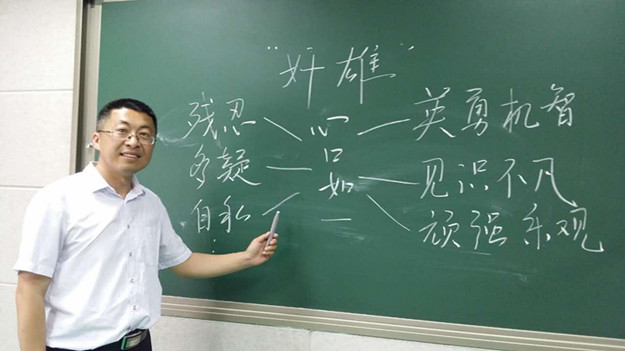 "奸雄"
残忍
多疑
自私
⋮
心口如一
英勇机智
见识不凡
顽强乐观